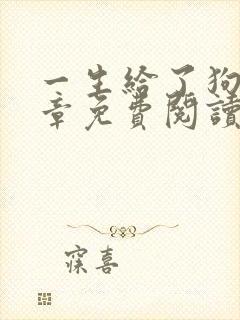 一生給了狗
章免費閱讀
寐喜